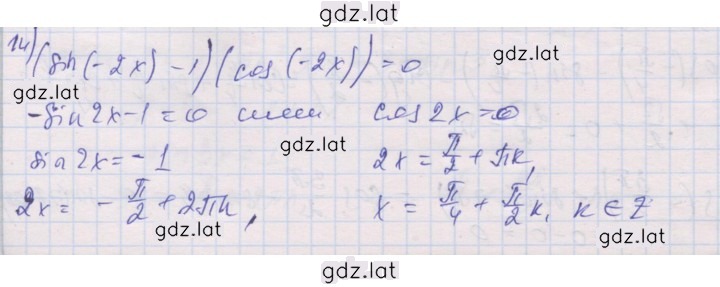 gdz.lat
14) (sin(-2x) -1) (cos(-2x)) = 0
gdz.lat
-sin2x-1=0 или cos2x=0
sin2x=-1 gdz.lat 2x = π/2 + πk,
2x = - π/2 + 2πn, x = π/4 + π/2 k, k ∈ Z
gdz.lat gdz.lat
gdz.lat